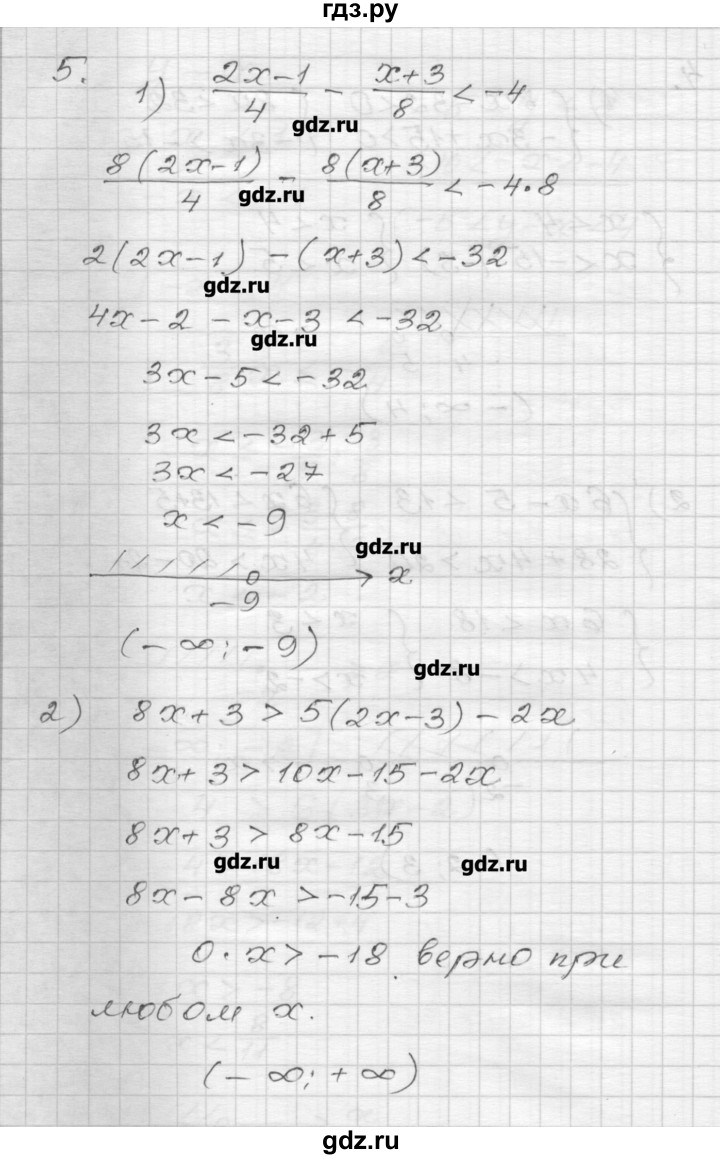 гдз.ру
5. 1) (2x-1)/4 - (x+3)/8 < -4
gdz.ru
8(2x-1)/4 - 8(x+3)/8 < -4·8
gdz.ru
2(2x-1) - (x+3) < -32
gdz.ru
4x - 2 - x - 3 < -32
gdz.ru
3x - 5 < -32
3x < -32 + 5
3x < -27
x < -9
gdz.ru
x
-9
(-∞; -9)
gdz.ru
2) 8x + 3 > 5(2x-3) - 2x
8x + 3 > 10x - 15 - 2x
8x + 3 > 8x - 15
gdz.ru gdz.ru
8x - 8x > -15 - 3
0·x > -18 верно при
любом x.
(-∞; +∞)
gdz.ru